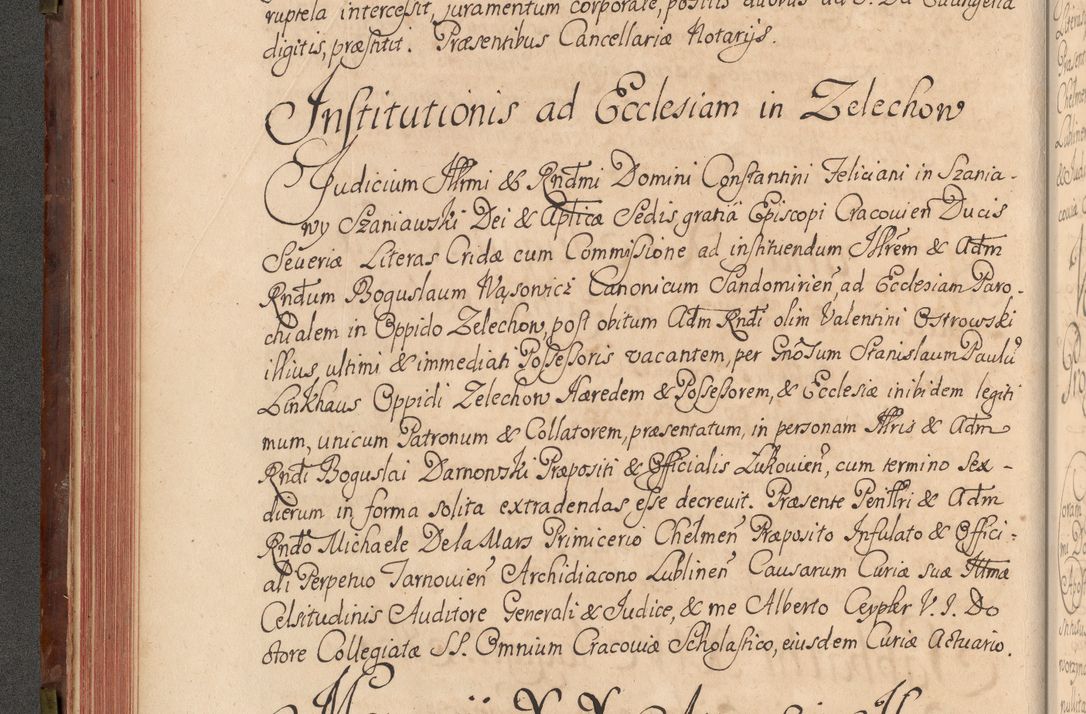 ruptela intercessit, juramentum corporale, positis duobus ad S. Dei Euangelia
digitis, præstitit. Præsentibus Cancellariæ Notarijs.
Institutionis ad Ecclesiam in Zelechow
Judicium Illrmi & Rndmi Domini Constantini Feliciani in Szania-
wy Szaniawski Dei & Aplicæ Sedis gratiâ Episcopi Cracouień Ducis
Seueriæ Literas Cridæ cum Commissione ad instituendum Illrem & Adm
Rndum Boguslaum Wąsowicz Canonicum Sandomirień, ad Ecclesiam Paro-
chialem in Oppido Zelechow, post obitum Adm Rndi olim Valentini Ostrowski
illius ultimi & immediati Possessoris vacantem, per Gnosum Stanislaum Paulu
Linkhaus Oppidi Zelechow Hæredem & Possessorem, & Ecclesiæ inibidem legiti
mum, unicum Patronum & Collatorem, præsentatum, in personam Illris & Adm
Rndi Boguslai Darnowski Præpositi & Officialis Lukouień, cum termino Sex-
dierum in forma solita extradendas esse decreuit. Præsente Penllri & Adm
Rndo Michaele De la Mars Primicerio Chelmeń Præposito Infulato & Offici:
ali Perpetuo Tarnouień Archidiacono Lublineń Causarum Curiæ suæ Illmæ
Celsitudinis Auditore Generali & Judice, & me Alberto Ceypler V. J. Do
ctore Collegiatæ SS. Omnium Cracouiæ Scholastico, eiusdem Curiæ Actuario.